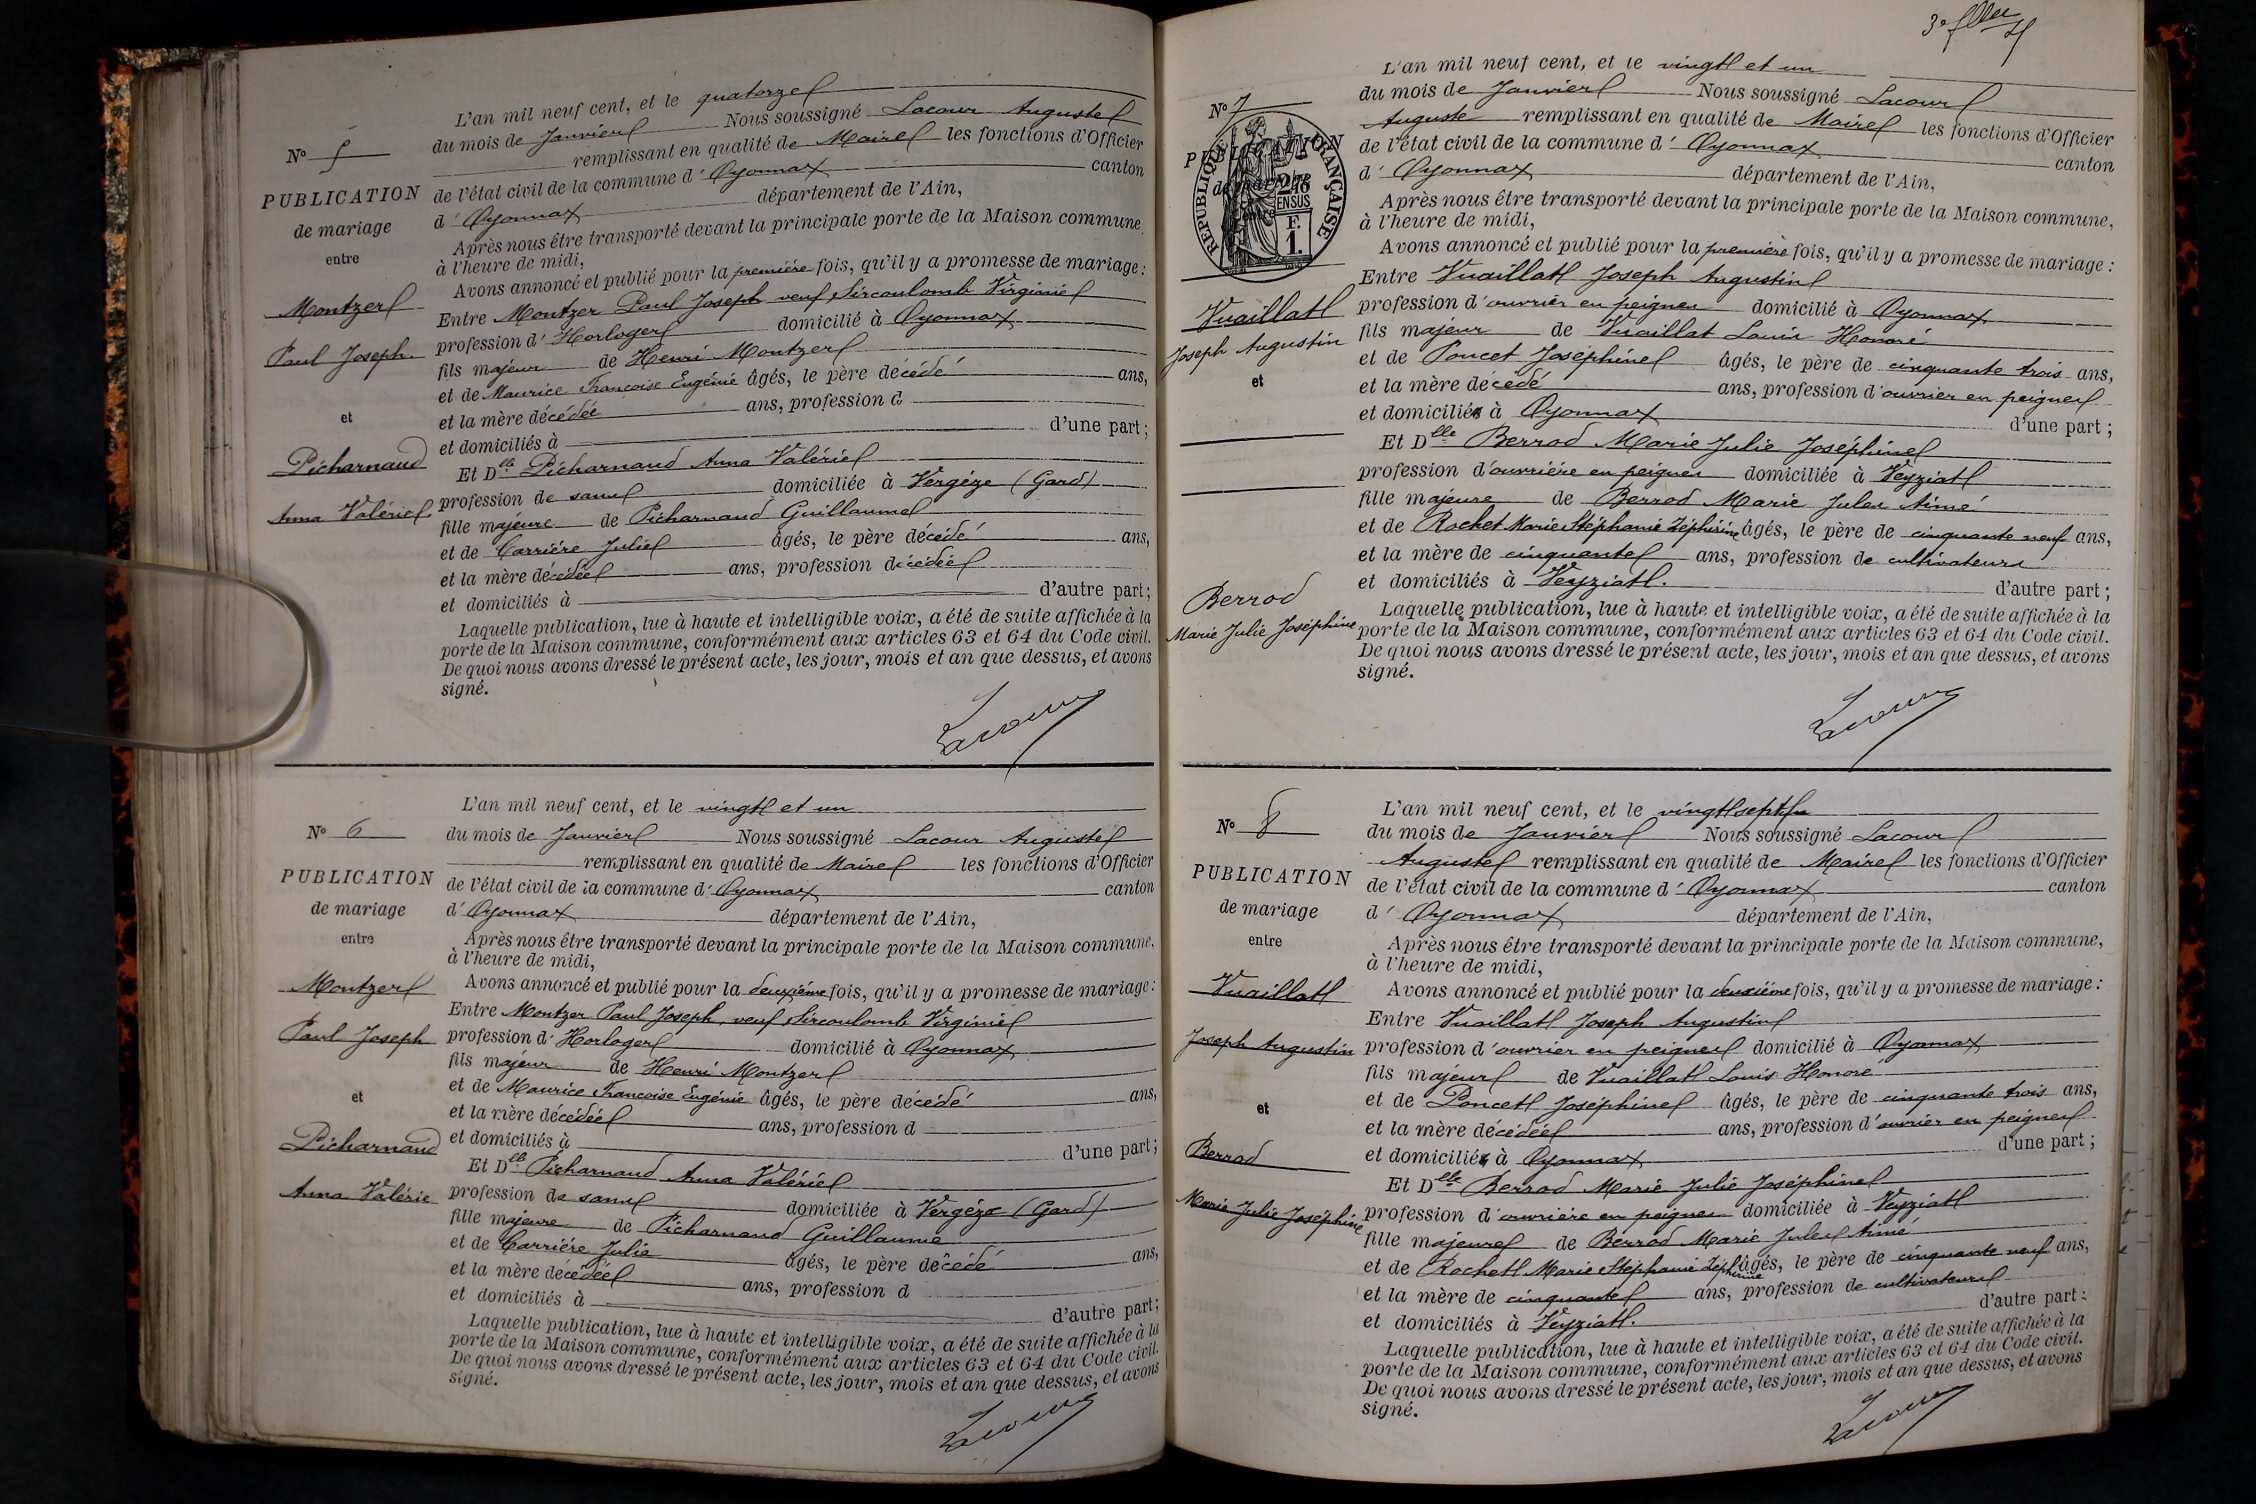 N° 5
PUBLICATION
de mariage
entre
Montzer
Paul Joseph.
et
Picharnaud
Anna Valérie
L'an mil neuf cent, et le quatorze
du mois de Janvier Nous soussigné Lacour Auguste
remplissant en qualité de Maire les fonctions d'Officier
de l'état civil de la commune d'Oyonnax canton
d'Oyonnax département de l'Ain,
Après nous être transporté devant la principale porte de la Maison commune,
à l'heure de midi,
Avons annoncé et publié pour la première fois, qu'il y a promesse de mariage :
Entre Montzer Paul Joseph veuf Sircoulomb Virginie
profession d'Horloger domicilié à Oyonnax
fils majeur de Henri Montzer
et de Maurice Francoise Eugénie âgés, le père décédé ans,
et la mère décédée ans, profession d
et domiciliés à d'une part ;
Et Dlle Picharnaud Anna Valérie
profession de sans domiciliée à Vergéze (Gard)
fille majeure de Picharnaud Guillaume
et de Carriére Julie âgés, le père décédé ans,
et la mère décédée ans, profession décédée
et domiciliés à d'autre part ;
Laquelle publication, lue à haute et intelligible voix, a été de suite affichée à la
porte de la Maison commune, conformément aux articles 63 et 64 du Code civil.
De quoi nous avons dressé le présent acte, les jour, mois et an que dessus, et avons
signé.
Lacour
N° 6
PUBLICATION
de mariage
entre
Montzer
Paul Joseph
et
Picharnaud
Anna Valérie
L'an mil neuf cent, et le vingt et un
du mois de Janvier Nous soussigné Lacour Auguste
remplissant en qualité de Maire les fonctions d'Officier
de l'état civil de la commune d'Oyonnax canton
d'Oyonnax département de l'Ain,
Après nous être transporté devant la principale porte de la Maison commune,
à l'heure de midi,
Avons annoncé et publié pour la deuxième fois, qu'il y a promesse de mariage :
Entre Montzer Paul Joseph, veuf Sircoulomb Virginie
profession d'Horloger domicilié à Oyonnax
fils majeur de Henri Montzer
et de Maurice Francoise Eugénie âgés, le père décédé ans,
et la mère décédée ans, profession d
et domiciliés à d'une part ;
Et Dlle Picharnaud Anna Valérie
profession de sans domiciliée à Vergéze (Gard)
fille majeure de Picharnaud Guillaume
et de Carriére Julie âgés, le père décédé ans,
et la mère décédée ans, profession d
et domiciliés à d'autre part ;
Laquelle publication, lue à haute et intelligible voix, a été de suite affichée à la
porte de la Maison commune, conformément aux articles 63 et 64 du Code civil.
De quoi nous avons dressé le présent acte, les jour, mois et an que dessus, et avons
signé.
Lacour
3e
N° 7
PUBLICATION
de mariage
entre
RÉPUBLIQUE FRANÇAISE
2/10
EN SUS
F.
1.
Vuaillat
Joseph Augustin
et
Berrod
Marie Julie Joséphine
L'an mil neuf cent, et le vingt et un
du mois de Janvier Nous soussigné Lacour
Auguste remplissant en qualité de Maire les fonctions d'Officier
de l'état civil de la commune d'Oyonnax canton
d'Oyonnax département de l'Ain,
Après nous être transporté devant la principale porte de la Maison commune,
à l'heure de midi,
Avons annoncé et publié pour la première fois, qu'il y a promesse de mariage :
Entre Vuaillat Joseph Augustin
profession d'ouvrier en peignes domicilié à Oyonnax
fils majeur de Vuaillat Louis Honoré
et de Poncet Joséphine âgés, le père de cinquante trois ans,
et la mère décédé ans, profession d'ouvrier en peignes
et domicilié à Oyonnax d'une part ;
Et Dlle Berrod Marie Julie Joséphine
profession d'ouvrière en peignes domiciliée à Veyziat
fille majeure de Berrod Marie Jules Aimé
et de Rochet Marie Stéphanie Zéphirine âgés, le père de cinquante neuf ans,
et la mère de cinquante ans, profession de cultivateurs
et domiciliés à Veyziat. d'autre part ;
Laquelle publication, lue à haute et intelligible voix, a été de suite affichée à la
porte de la Maison commune, conformément aux articles 63 et 64 du Code civil.
De quoi nous avons dressé le présent acte, les jour, mois et an que dessus, et avons
signé.
Lacour
N° 8
PUBLICATION
de mariage
entre
Vuaillat
Joseph Augustin
et
Berrod
Marie Julie Joséphine
L'an mil neuf cent, et le vingt sept
du mois de Janvier Nous soussigné Lacour
Auguste remplissant en qualité de Maire les fonctions d'Officier
de l'état civil de la commune d'Oyonnax canton
d'Oyonnax département de l'Ain,
Après nous être transporté devant la principale porte de la Maison commune,
à l'heure de midi,
Avons annoncé et publié pour la deuxième fois, qu'il y a promesse de mariage :
Entre Vuaillat Joseph Augustin
profession d'ouvrier en peignes domicilié à Oyonnax
fils majeur de Vuaillat Louis Honoré
et de Poncet Joséphine âgés, le père de cinquante trois ans,
et la mère décédée ans, profession d'ouvrier en peignes
et domicilié à Oyonnax d'une part ;
Et Dlle Berrod Marie Julie Joséphine
profession d'ouvrière en peignes domiciliée à Veyziat
fille majeure de Berrod Marie Jules Aimé
et de Rochet Marie Stéphanie Zéphirine âgés, le père de cinquante neuf ans,
et la mère de cinquante ans, profession de cultivateurs
et domiciliés à Veyziat. d'autre part :
Laquelle publication, lue à haute et intelligible voix, a été de suite affichée à la
porte de la Maison commune, conformément aux articles 63 et 64 du Code civil.
De quoi nous avons dressé le présent acte, les jour, mois et an que dessus, et avons
signé.
Lacour